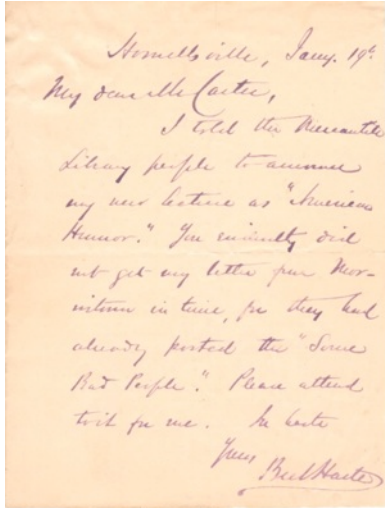 Hornellsville, Jany. 19th
My dear Mr Carter,
I told the Mercantile
Library people to announce
my new lecture as "American
Humor." You evidently did
not get my letter from Mor-
ristown in time, for they had
already posted the "Some
Bad People." Please attend
to it for me. In haste
Yours
Bret Harte